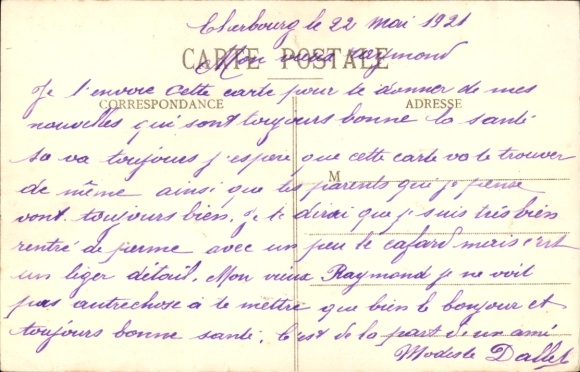 Cherbourg le 22 mai 1921
CARTE POSTALE
Mon vieux Raymond
Je t'envoie cette carte pour te donner de mes
CORRESPONDANCE
ADRESSE
nouvelles qui sont toujours bonne la santé
sa va toujours j'espère que cette carte va te trouver
M
de même ainsi que tes parents qui je pense
vont toujours bien. Je te dirai que je suis très bien
rentré de perme avec un peu le cafard mais c'est
un léger détail. Mon vieux Raymond je ne voit
pas autrechose à te mettre que bien le bonjour et
toujours bonne santé. C'est de la part d'un ami
Modeste Dallet